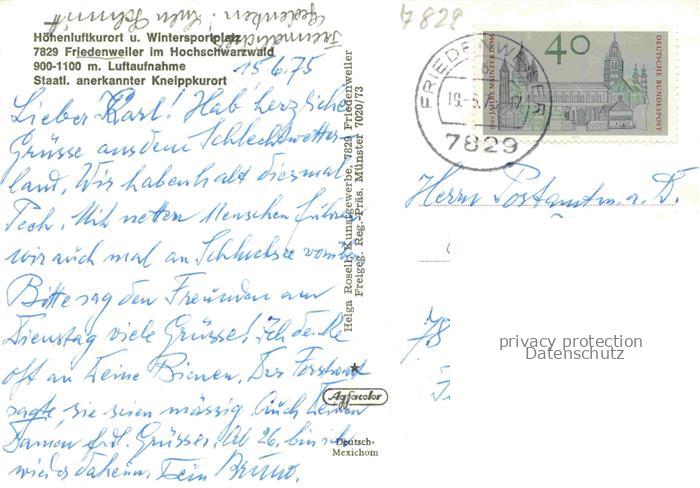 Höhenluftkurort u. Wintersportplatz
7829 Friedenweiler im Hochschwarzwald
900-1100 m. Luftaufnahme
Staatl. anerkannter Kneippkurort
15.6.75
Lieber Karl! Hab' herzliche
Grüsse aus dem Schlechtwetter-
land. Wir haben halt diesmal
Pech. Mit netten Menschen führen
wir auch mal an Schluchsee vorbei
Bitte sag den Freunden am
Dienstag viele Grüsse! Ich denke
oft an Deine Bienen. Der Forstwart
sagte, sie seien mässig. Auch Deinen
Damen frdl. Grüsse. Ab 26. bin ich
wieder daheim. Dein Bruno.
Gedenken!
Helga Roselt, Kunstgewerbe, 7829 Friedenweiler
Freigeg. Reg.-Präs. Münster 7020/73
Agfacolor
Deutsch-
Mexichom
7829
40
DEUTSCHE BUNDESPOST
1000 JAHRE MAINZER DOM
FRIEDENWEILER
7829
Herrn Postamtm. a. D.
78
privacy protection
Datenschutz